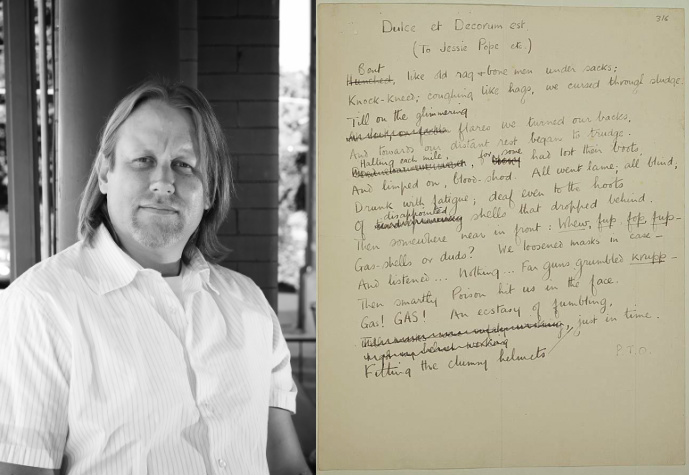 Dulce et Decorum est
3/6
(To Jessie Pope etc.)
Bent
Hunched, like old rag & bone men under sacks;
Knock-Kneed; coughing like hags, we cursed through sludge,
Till on the glimmering
flares we turned our backs,
And towards our distant rest began to trudge.
Halting each mile, for some
had lost their boots,
And limped on, blood-shod. All went lame; all blind,
Drunk with fatigue; deaf even to the hoots
disappointed
Of shells that dropped behind.
Then somewhere near in front: Whew, fup, fop, fup—
Gas-shells or duds? We loosened masks in case—
And listened... Nothing... Far guns grumbled Krupp—
Then smartly Poison hit us in the face.
Gas! GAS! An ecstasy of fumbling.
just in time.
Fitting the clumsy helmets
P.T.O.